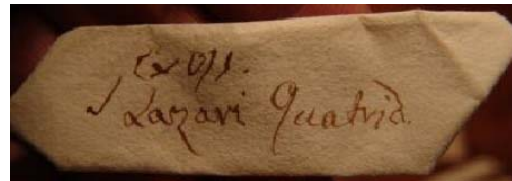 Ex Oss.
S Lazari Quatrid.